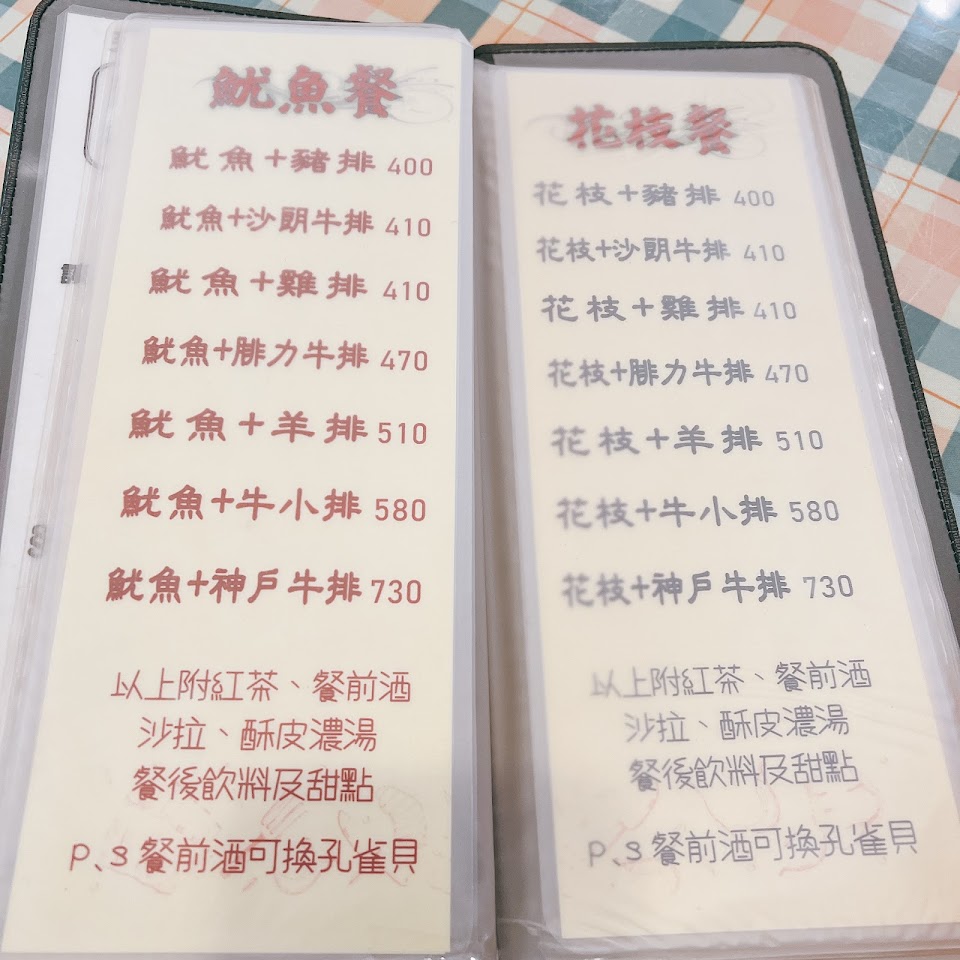 魷魚餐
魷魚+豬排 400
魷魚+沙朗牛排 410
魷魚+雞排 410
魷魚+腓力牛排 470
魷魚+羊排 510
魷魚+牛小排 580
魷魚+神戶牛排 730
以上附紅茶、餐前酒
沙拉、酥皮濃湯
餐後飲料及甜點
P、s 餐前酒可換孔雀貝
花枝餐
花枝+豬排 400
花枝+沙朗牛排 410
花枝+雞排 410
花枝+腓力牛排 470
花枝+羊排 510
花枝+牛小排 580
花枝+神戶牛排 730
以上附紅茶、餐前酒
沙拉、酥皮濃湯
餐後飲料及甜點
P、s 餐前酒可換孔雀貝